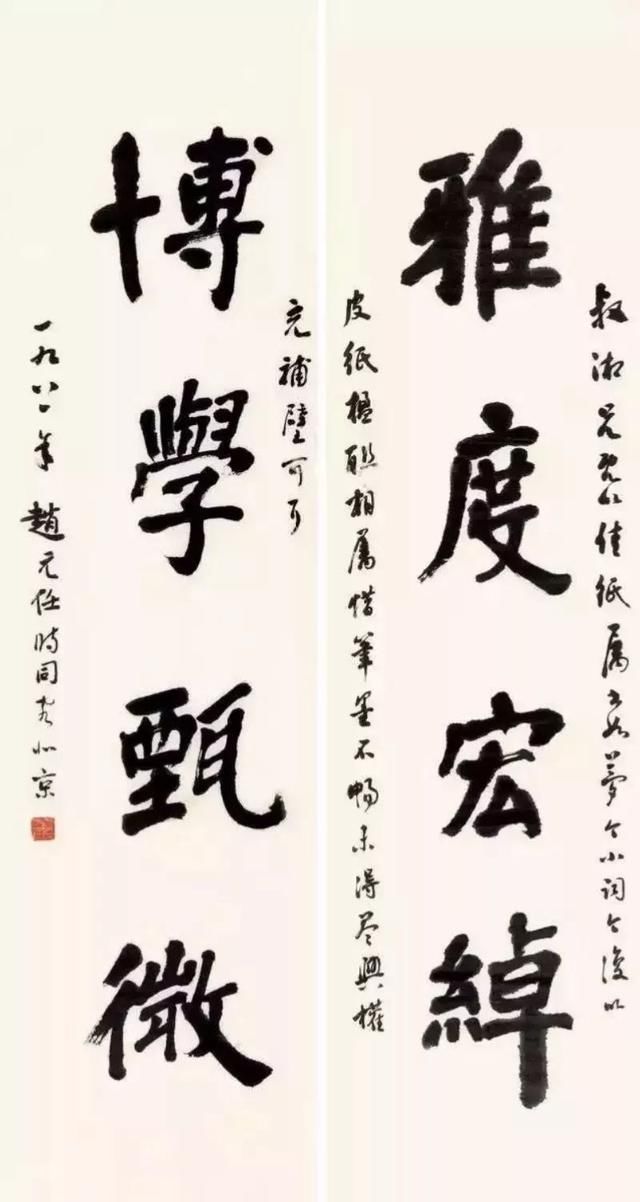 叔湘兄既以佳紙屬書如夢令小詞今復以
雅度宏綽
皮紙楹聯相屬惜筆墨不暢未得尽興權
充補壁可耳
博學甄微
一九八一年 趙元任時同客北京